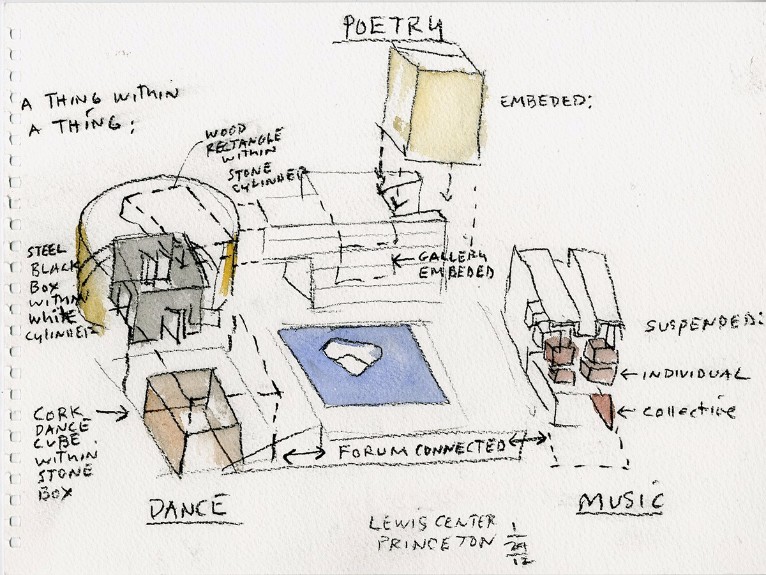 POETRY
A THING WITHIN
A THING;
WOOD
RECTANGLE
WITHIN
STONE
CYLINDER
EMBEDED:
STEEL
BLACK
BOX
WITHIN
WHITE
CYLINDER
GALLERY
EMBEDED
SUSPENDED:
INDIVIDUAL
COLLECTIVE
CORK
DANCE
CUBE
WITHIN
STONE
BOX
FORUM CONNECTED
DANCE
MUSIC
LEWIS CENTER
PRINCETON
1
24
12